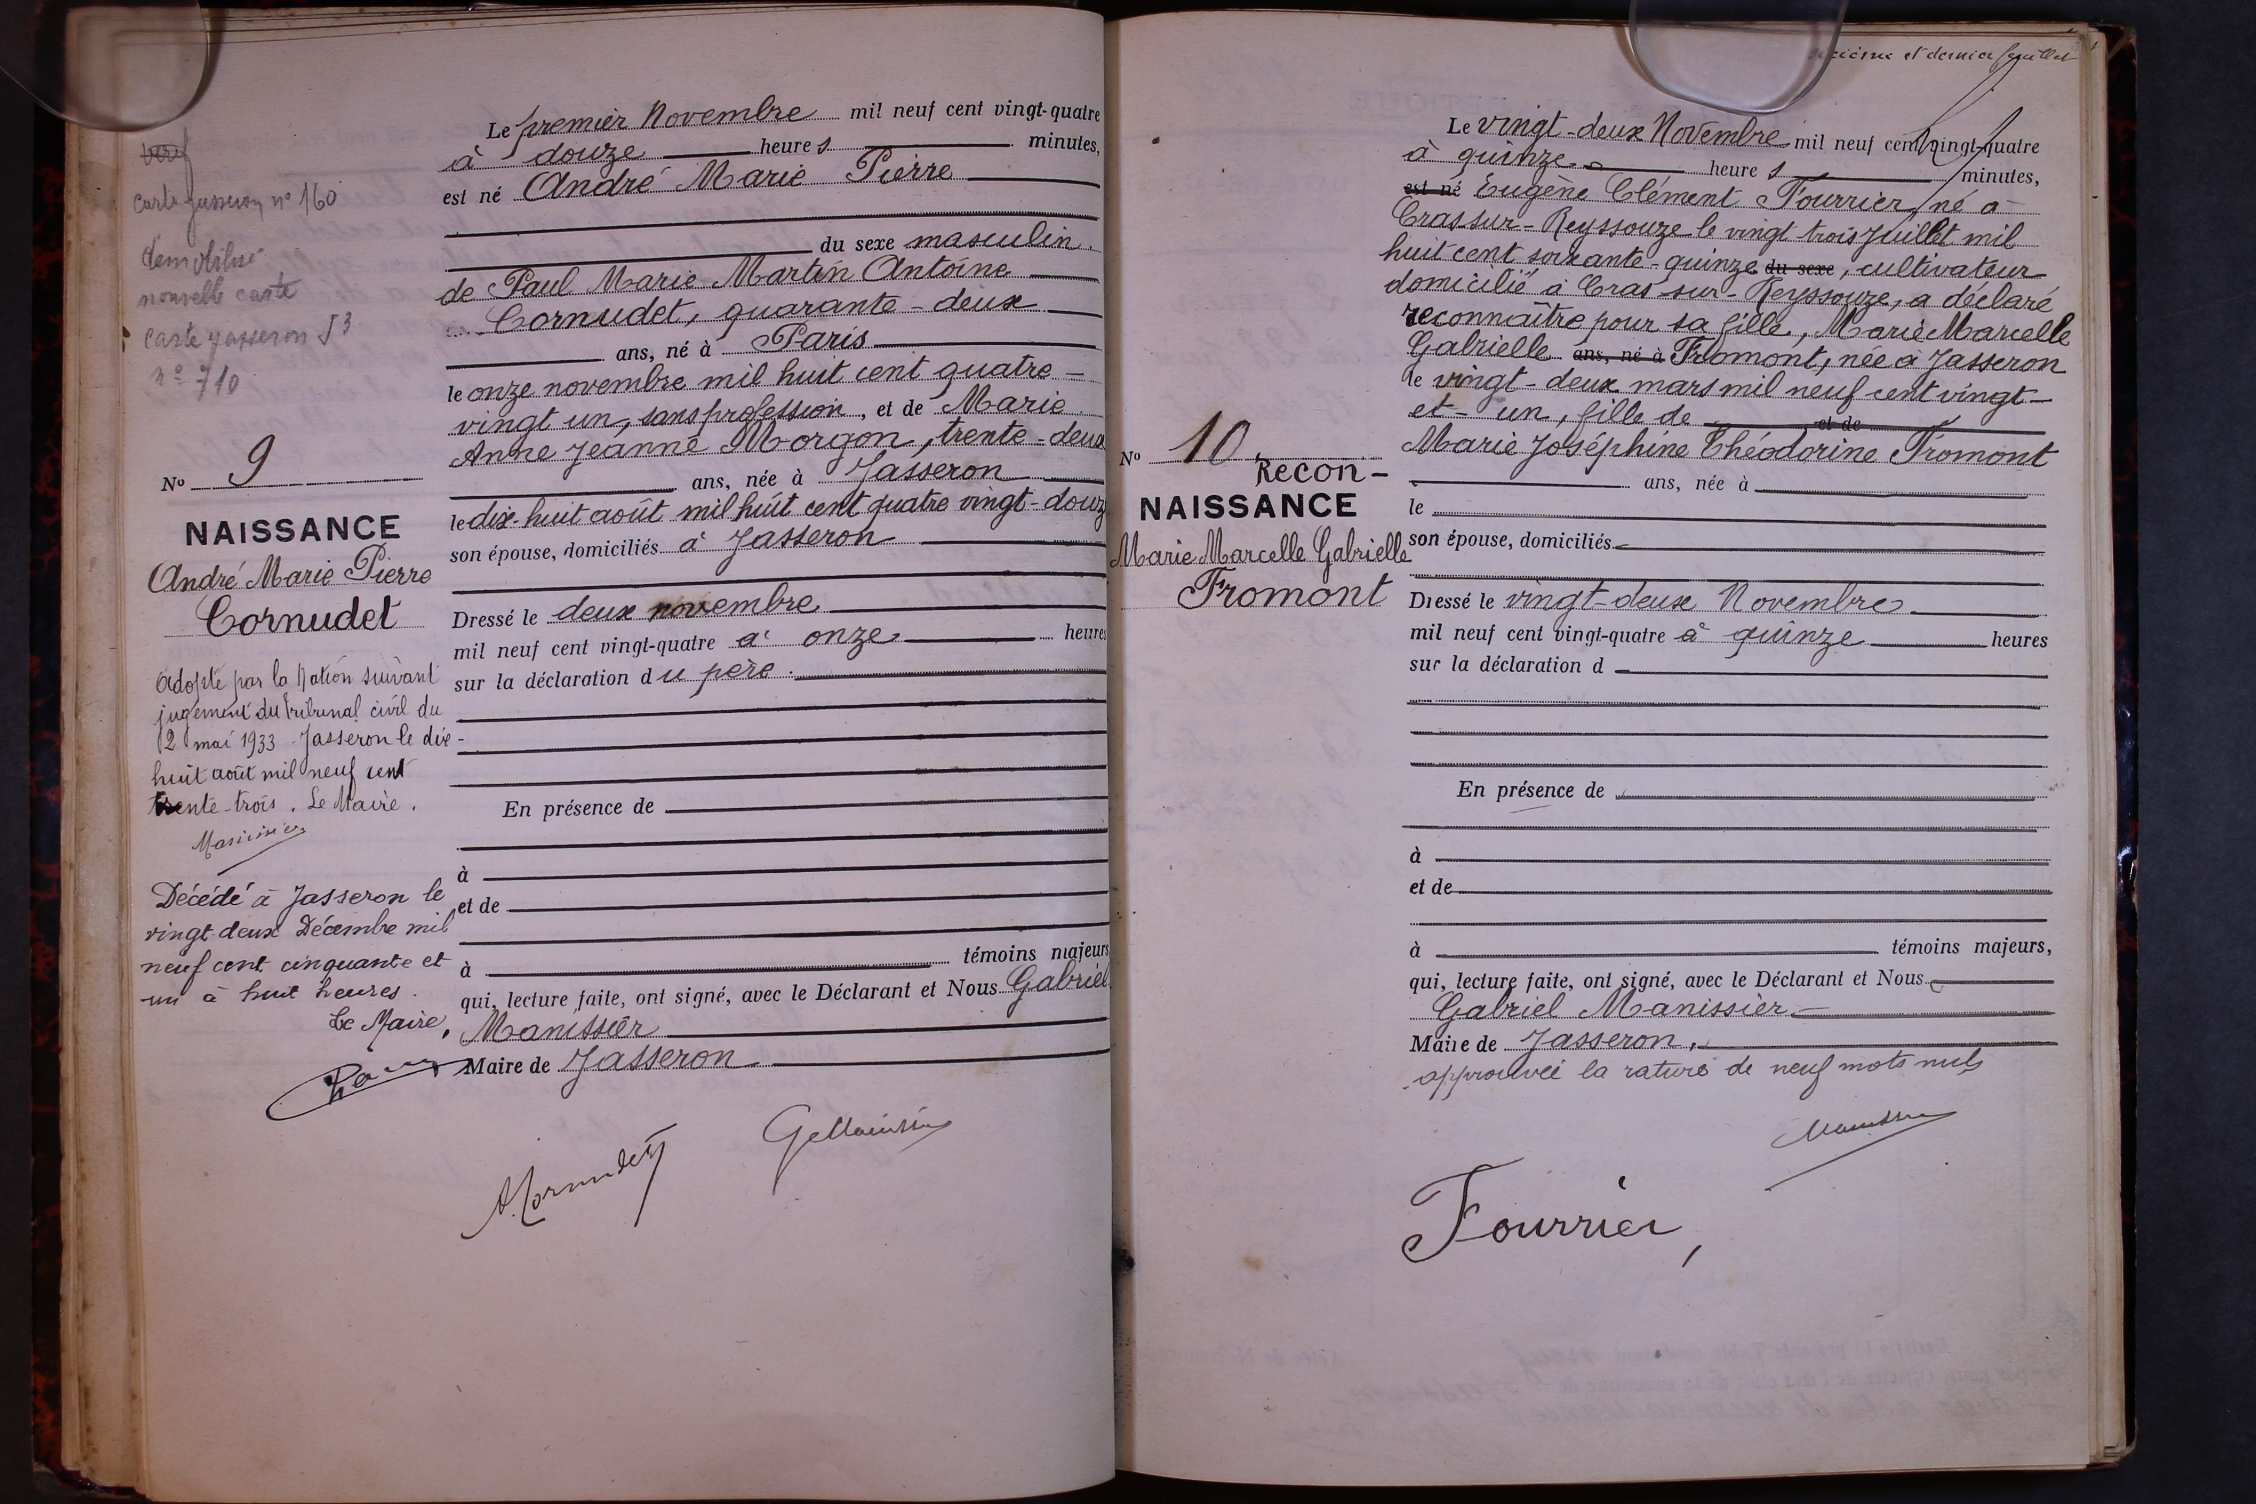 carte Jasseron n° 160
démobilisé
nouvelle carte
carte Jasseron J3
n° 710
N° 9
NAISSANCE
André Marie Pierre
Cornudet
Adopté par la Nation suivant
jugement du tribunal civil du
12 mai 1933 Jasseron le dix-
huit août mil neuf cent
trente-trois. Le Maire.
Manissier
Décédé à Jasseron le
vingt deux Décembre mil
neuf cent cinquante et
un à huit heures.
Le Maire,
Le premier Novembre mil neuf cent vingt-quatre
à douze heures minutes,
est né André Marie Pierre
du sexe masculin.
de Paul Marie Martin Antoine
Cornudet, quarante-deux
ans, né à Paris
le onze novembre mil huit cent quatre-
vingt un, sans profession, et de Marie
Anne Jeanne Morgon, trente-deux
ans, née à Jasseron
le dix-huit août mil huit cent quatre vingt-douze
son épouse, domiciliés à Jasseron
Dressé le deux novembre
mil neuf cent vingt-quatre à onze heures
sur la déclaration du père.
En présence de
à
et de
à témoins majeurs
qui, lecture faite, ont signé, avec le Déclarant et Nous Gabriel
Manissier
Maire de Jasseron
Cornudet
GManissier
et dernier feuillet
N° 10
Recon-
NAISSANCE
Marie Marcelle Gabrielle
Fromont
Le vingt-deux Novembre mil neuf cent vingt-quatre
à quinze heures minutes,
est né Eugène Clément Fourrier, né à
Cras-sur-Reyssouze le vingt trois Juillet mil
huit cent soixante-quinze du sexe, cultivateur
domicilié à Cras-sur-Reyssouze, a déclaré
reconnaître pour sa fille, Marie Marcelle
Gabrielle ans, né à Fromont, née à Jasseron
le vingt-deux mars mil neuf cent vingt-
et-un, fille de et de
Marie Joséphine Théodorine Fromont
ans, née à
le
son épouse, domiciliés
Dressé le vingt-deux Novembre
mil neuf cent vingt-quatre à quinze heures
sur la déclaration d
En présence de
à
et de
à témoins majeurs,
qui, lecture faite, ont signé, avec le Déclarant et Nous
Gabriel Manissier
Maire de Jasseron.
approuvée la rature de neuf mots nuls
Manissier
Fourrier,